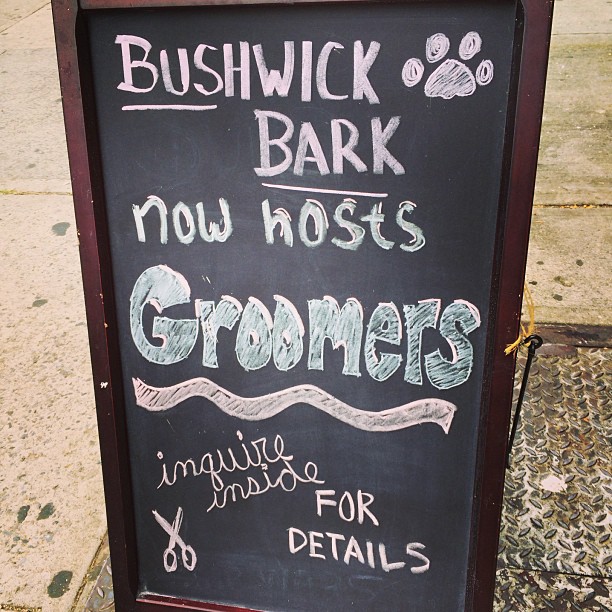 BUSHWICK
BARK
now hosts
Groomers
inquire
inside
FOR
DETAILS